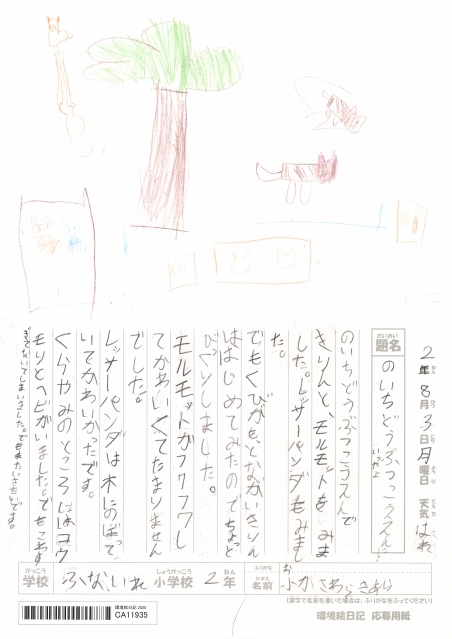 2年 8月 3日 月曜日 天気 はれ
だいめい
題名
のいちどうぶつこうえん
いったよ
のいちどうぶつこうえんで
きりんと、モルモットを みま
した。レッサーパンダもみまし
た。
でもくびがとな
ははじめてみたのでちょっと
びっくりしました。
モルモットがフワフワし
てかわいくてたまりません
でした。
レッサーパンダは木にのぼって
いてかわいかったです。
くらやみのところにはコウ
モリとヘビがいました。でもこわす
ぎてないてしまいました。でもまたいきたいです。
がっこう
学校
ふないれ
しょうがっこう
小学校
2年
ふりがな
なまえ
名前
(漢字で名前を書いた場合は、ふりがなをふってください)
環境絵日記 2020
CA11935
環境絵日記 応募用紙